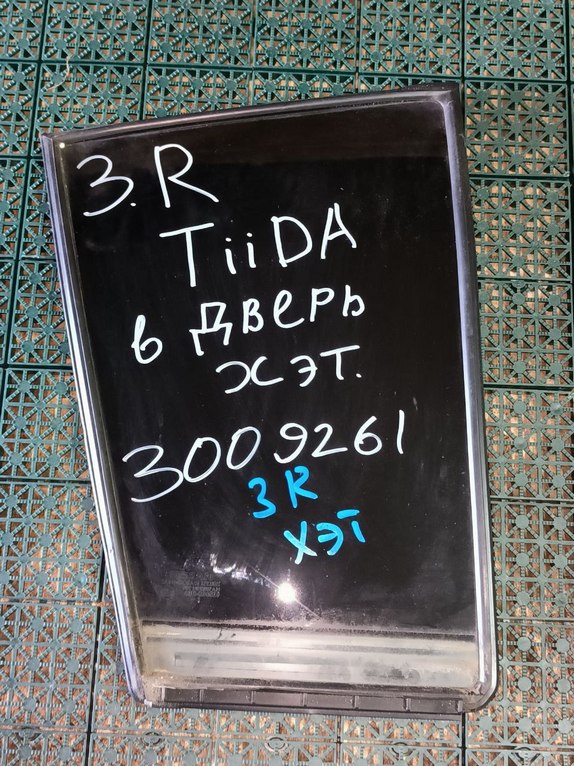 З.R
TiiDA
в дверь
хэт.
3009261
ЗR
ХЭТ